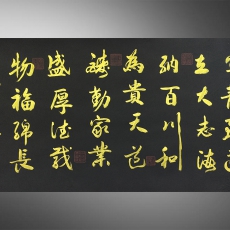 立大志海
納百川和
為貴天道
酬勤家業
盛厚德載
物福綿長